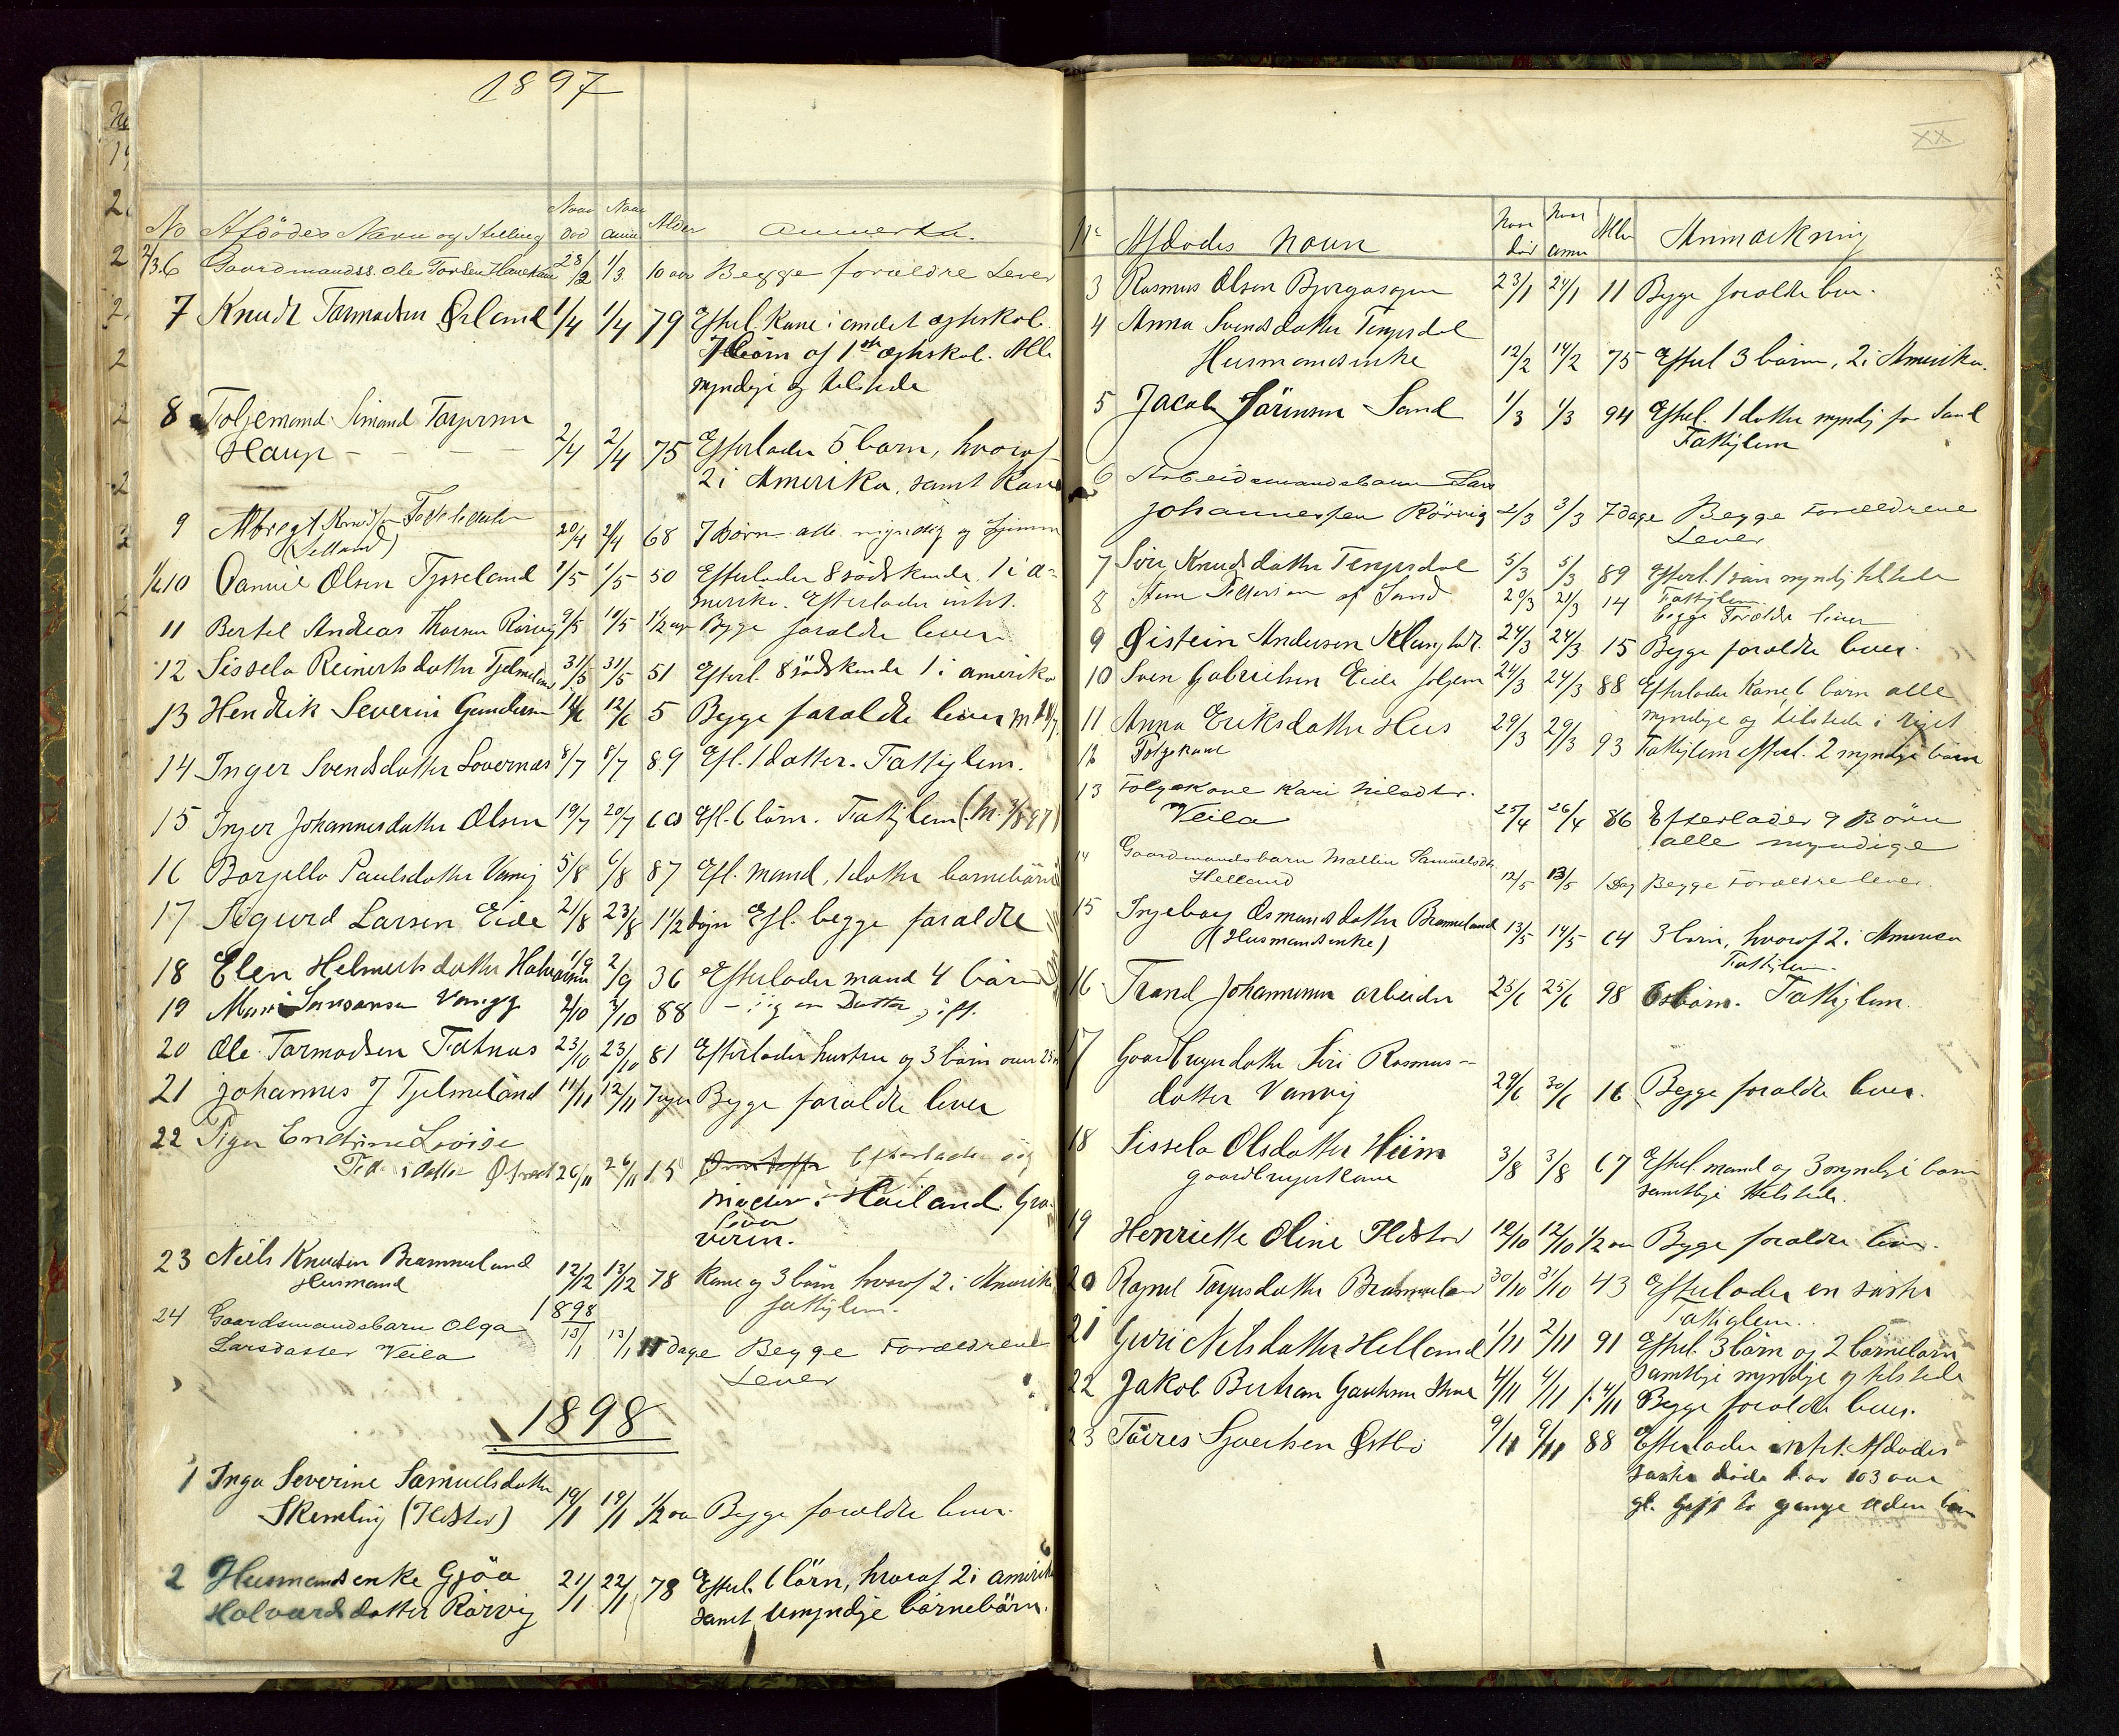 1897
No Afdödes Navn og Stilling Naar död Naar anm Alder Anmerkn.
6 Gaardmandss. Ole 28/2 1/3 10 aar Begge forældre Lever
7 Knudt Tormodsen Øiland 1/4 1/4 79 Efterl. Kone i andet ægteskab
7 börn af 1ste ægteskab. Alle
myndige og tilstede
8 Folgemand Simand
Haup 2/4 2/4 75 Efterlader 5 barn, hvoraf
2 i Amerika, samt Kone
9 20/4 21/4 68 7 Börn alle myndig og hjemme
10 Daniel Olsen Tysseland 1/5 1/5 50 Efterlader 8 södskende 1 i a-
merika. Efterlader intet.
11 Bertel Andreas Rörvig 9/5 10/5 1/2 aar Begge foraldre lever
12 Sissela Reinertsdatter Tjelmeland 31/5 31/5 51 Efterl. 8 södskende 1 i amerika
13 Hendrik Severin Gundersen 11/6 12/6 5 Begge foraldre lever
14 Inger Svendsdatter Lovernæs 8/7 8/7 89 Efl. 1 datter. Fattiglem.
15 Inger Johannesdatter Olsen 19/7 20/7 60 Efl. 6 börn. Fattiglem
16 Paulsdatter Vanvig 5/8 6/8 87 Efl. mand, 1 datter barnebörn
17 Sigurd Larsen Eide 21/8 23/8 1 1/2 dogn Efl. begge foraldre
18 Elen Helmertsdatter 1/9 2/9 36 Efterlader mand 4 börn
19 Vanvig 2/10 2/10 88 en Datter, gift.
20 Ole Tormodsen Fatnæs 23/10 23/10 81 Efterlader hustru og 3 börn over
21 Johannes J Tjelmeland 11/11 12/11 7 uger Begge foraldre lever
22 Pigen Endrine Lovise
datter 26/11 26/11 15 Efterlader sig
moder i Hoiland
lever
23 Niels Knudsen Brommeland
Husmand 12/12 13/12 78 Kone og 3 börn hvoraf 2 i Amerika
fattiglem.
1898
24 Gaardsmandsbarn Olga
Larsdatter Veila 13/1 13/1 11 dage Begge Forældrene
Lever
1898
1 Inga Severine Samuelsdatter
Skemling (Hestov) 19/1 19/1 1/2 aar Begge foraldre lever.
2 Husmandsenke Gjöa
Halvardsdatter Rörvig 21/1 22/1 78 Efterl. 6 börn, hvoraf 2 i amerika
samt umyndige barnebörn.
XX
Nr Afdödes navn Naar död Naar anm Alder Anmærkning
3 Rasmus Olsen 23/1 24/1 11 Begge foraldre lever.
4 Anna Svendsdatter Tengesdal
Husmandsenke 12/2 14/2 75 Efterl 3 börn, 2 i Amerika.
5 Jacob Sörensen Sand 1/3 1/3 94 Efterl. 1 datter myndig for Sand
Fattiglem
6 Arbeidsmandsbarn Lars
Johannessen Rörvig 2/3 3/3 7 dage Begge Forældrene
Lever
7 Siri Knudsdatter Tengesdal 5/3 5/3 89 Efterl. 1 sön myndig tilstede
Fattiglem
8 af Sand 20/3 21/3 14 begge Forældre lever
9 Øistein Andersen 24/3 24/3 15 Begge foraldre lever.
10 Sven Gabrielsen Eide folgem 24/3 24/3 88 Efterlader Kone 6 börn alle
myndige og tilstede i riget
11 Anna Eriksdatter Hus 29/3 29/3 93 Fattiglem efterl. 2 myndige börn
12 Folgekone
13 Folgekone Kari Nilsdtr.
Veila 25/4 26/4 86 Efterlader 9 Börn
alle myndige
14 Gaardmandsbarn Mallin Samuelsdtr.
Helland 12/5 13/5 1 Dag Begge Forældre lever.
15 Ingeborg Osmundsdatter Brommeland
(Husmandsenke) 13/5 14/5 64 3 börn, hvoraf 2 i America
Fattiglem.
16 Trond Johannesen arbeider 25/6 25/6 98 6 börn. Fattiglem.
17 Gaardbrugerdatter Siri Rasmus-
datter Vanvig 29/6 30/6 16 Begge foraldre lever.
18 Sissela Olsdatter Hiim
gaardbrugerkone 3/8 3/8 67 Efterl. mand og 3 myndige börn
samtlige tilstede.
19 Henriette Oline Hestov 12/10 12/10 1/2 aar Begge foraldre lever.
20 Brommeland 30/10 31/10 43 Efterlader en söster
Fattiglem.
21 Guri Nilsdatter Helland 1/11 2/11 91 Efterl. 3 börn og 2 barnebörn
samtlige myndige og tilstede
22 Jakob Bertran 4/11 4/11 Begge foraldre lever.
23 Sjursen Østbö 9/11 9/11 88 Efterlader intet. Afdödes
söster döde 103 aar
gl. Gift to gange uden börn